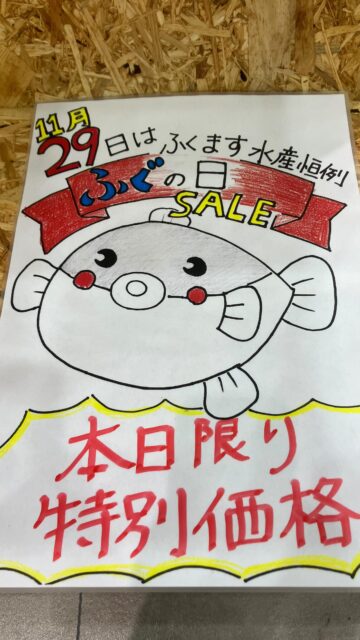 11月
29日は ふくます水産恒例
ふぐの日
SALE
本日限り
特別価格